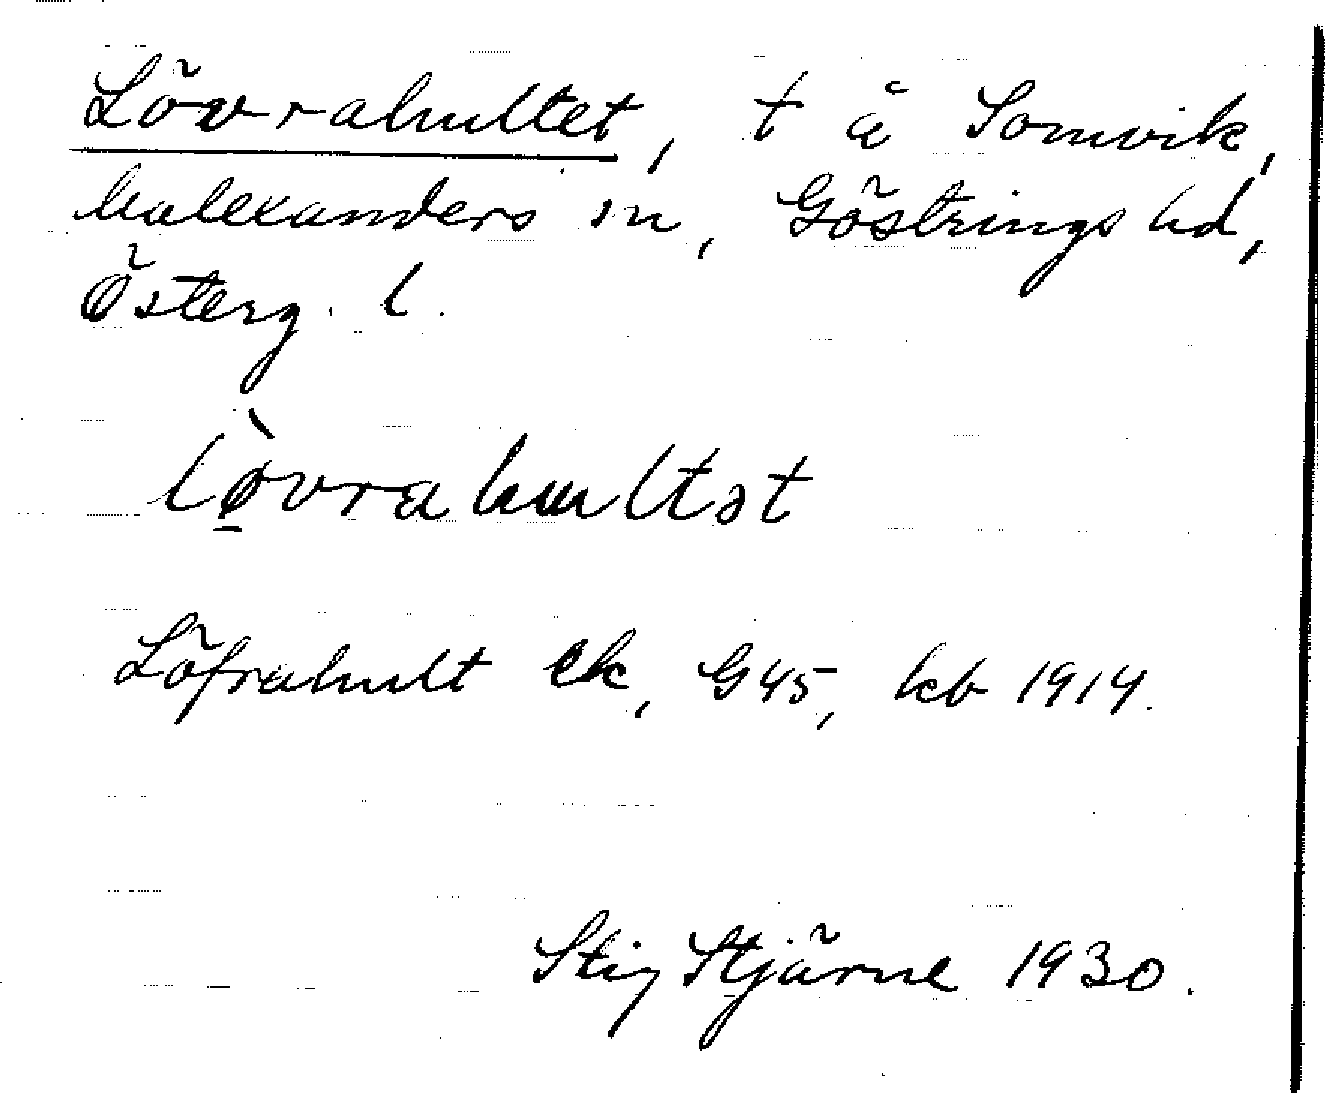 Lövrahultet, t å Somvik,
Malexanders sn, Göstrings hd,
Österg. l.
lø̠̀vrahultət
Löfrahult ek, G45, kb 1914.
Stig Stjärne 1930.